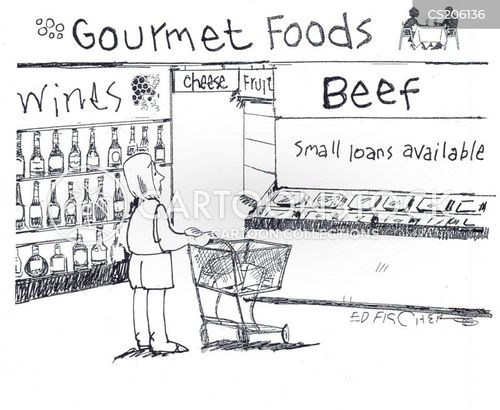 CS206136
Gourmet Foods
Wines
Cheese
Fruit
Beef
Small loans available
CARTOONSTOCK
CARTOON COLLECTIONS
ED FISCHER